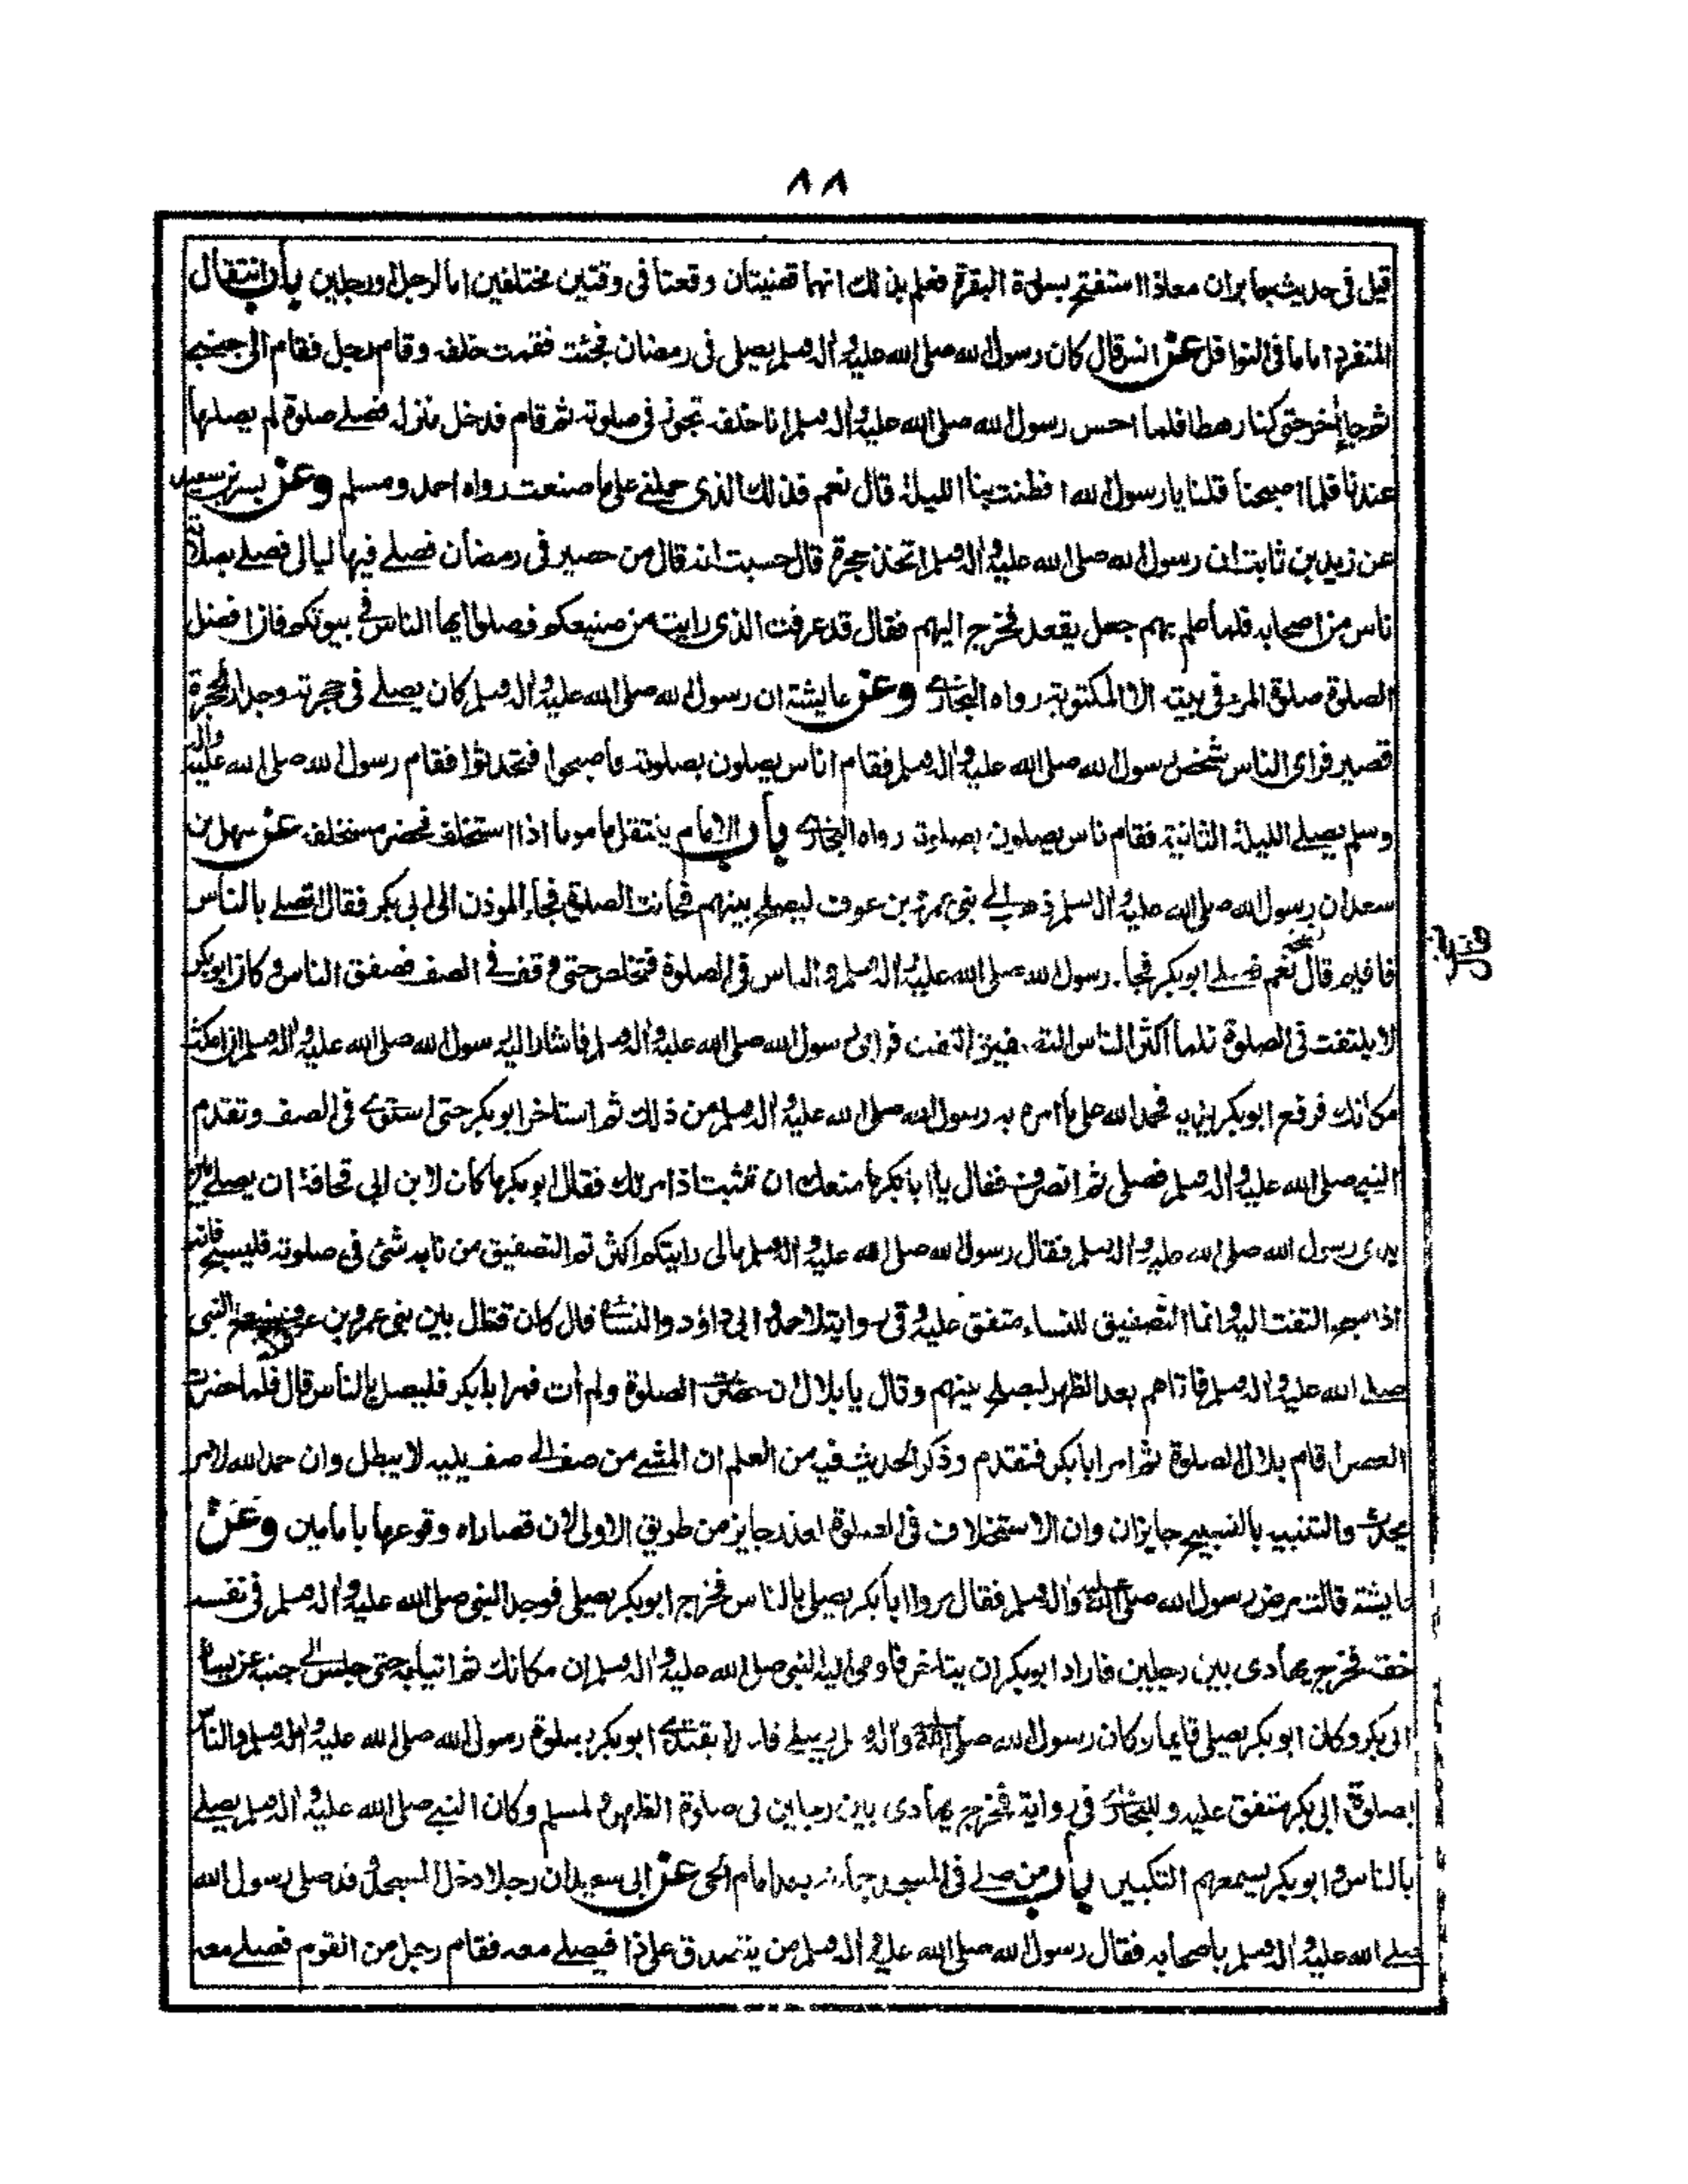 ٨٨
قيل في حديث جابر ان معاذا استفتح بسورة البقرة فعلم بذلك انهما قضيتان وقعتا في وقتين مختلفين اما لرجل او رجلين باب انتقال
المنفرد اماما في النوافل عن انس قال كان رسول الله صلى الله عليه واله وسلم يصلى فى رمضان فجئت فقمت خلفه وقام رجل فقام الى جنبى
ثم جاء اخر حتى كنا رهطا فلما احس رسول الله صلى الله عليه واله وسلم انا خلفه تجوز فى صلوته ثم قام فدخل منزله فصلے صلوة لم يصلها
عندنا فلما اصبحنا قلنا يا رسول الله افطنت بنا الليلة قال نعم فذلك الذى حملنے على ما صنعت رواه احمد ومسلم وعن بسر بن سعيد
عن زيد بن ثابت ان رسول الله صلى الله عليه واله وسلم اتخذ حجرة قال حسبت انه قال من حصير فى رمضان فصلے فيها ليالى فصلے بصلاته
ناس من اصحابه فلما علم بهم جعل يقعد فخرج اليهم فقال قد عرفت الذى رايت من صنيعكم فصلوا ايها الناس فى بيوتكم فان افضل
الصلوة صلوة المرء فى بيته الا المكتوبة رواه البخارے وعن عايشة ان رسول الله صلى الله عليه واله وسلم كان يصلے فى حجرته وجدار الحجرة
قصير فراى الناس شخص رسول الله صلى الله عليه واله وسلم فقام اناس يصلون بصلوته فاصبحوا فتحدثوا فقام رسول الله صلى الله عليه واله
وسلم يصلے الليلة الثانية فقام ناس يصلون بصلوته رواه البخارے باب الامام ينتقل ماموما اذا استخلف فحضر مستخلفه عن سهل بن
سعد ان رسول الله صلى الله عليه واله وسلم ذهب الے بنى عمرو بن عوف ليصلح بينهم فحانت الصلوة فجاء الموذن الى ابى بكر فقال اتصلے بالناس
فاقيم قال نعم فصلے ابو بكر فجاء رسول الله صلى الله عليه واله وسلم والناس فى الصلوة فتخلص حتى وقف فے الصف فصفق الناس وكان ابو بكر
لا يلتفت فى الصلوة فلما اكثر الناس التصفيق التفت فراى رسول الله صلى الله عليه واله وسلم فاشار اليه رسول الله صلى الله عليه واله وسلم ان امكث
مكانك فرفع ابو بكر يديه فحمد الله على ما امره به رسول الله صلى الله عليه واله وسلم من ذلك ثم استاخر ابو بكر حتى استوے فى الصف وتقدم
النبى صلى الله عليه واله وسلم فصلى ثم انصرف فقال يا ابا بكر ما منعك ان تثبت اذ امرتك فقال ابو بكر ما كان لابن ابى قحافة ان يصلے بين
يدى رسول الله صلى الله عليه واله وسلم فقال رسول الله صلى الله عليه واله وسلم مالى رايتكم اكثرتم التصفيق من نابه شئ فى صلوته فليسبح فانه
اذا سبح التفت اليه وانما التصفيق للنساء متفق عليه وفى رواية لاحمد وابى داؤد والنسائے قال كان قتال بين بنى عمرو بن عوف فبلغ النبى
صلے الله عليه واله وسلم فاتاهم بعد الظهر ليصلح بينهم وقال يا بلال ان حضرت الصلوة ولم ات فمر ابا بكر فليصل بالناس قال فلما حضرت
العصر اقام بلال الصلوة ثم امر ابا بكر فتقدم وذكر الحديث فيه من العلم ان المشے من صف الے صف يليه لا يبطل وان حمد الله لامر
يحدث والتنبيه بالتسبيح جايزان وان الاستخلاف فى الصلوة لعذر جايز من طريق الاولى لان قصاراه وقوعها بامامين وعن
عايشة قالت مرض رسول الله صلى الله عليه واله وسلم فقال مروا ابا بكر يصلى بالناس فخرج ابو بكر يصلى فوجد النبى صلى الله عليه واله وسلم فى نفسه
خفة فخرج يهادى بين رجلين فاراد ابو بكر ان يتاخر فاومى اليه النبى صلى الله عليه واله وسلم ان مكانك ثم اتيا به حتى جلس الے جنبه عن يسار
ابى بكر وكان ابو بكر يصلى قايما وكان رسول الله صلى الله عليه واله وسلم يصلے قاعدا يقتدے ابو بكر بصلوة رسول الله صلى الله عليه واله وسلم والناس
بصلوة ابى بكر متفق عليه وللبخارے فى رواية فخرج يهادى بين رجلين فى صلوة الظهر ولمسلم وكان النبے صلى الله عليه واله وسلم يصلے
بالناس وابو بكر يسمعهم التكبير باب من صلے فى المسجد جماعة بعد امام الحى عن ابى سعيد ان رجلا دخل المسجد وقد صلى رسول الله
صلے الله عليه واله وسلم باصحابه فقال رسول الله صلى الله عليه واله وسلم من يتصدق على ذا فيصلے معه فقام رجل من القوم فصلے معه